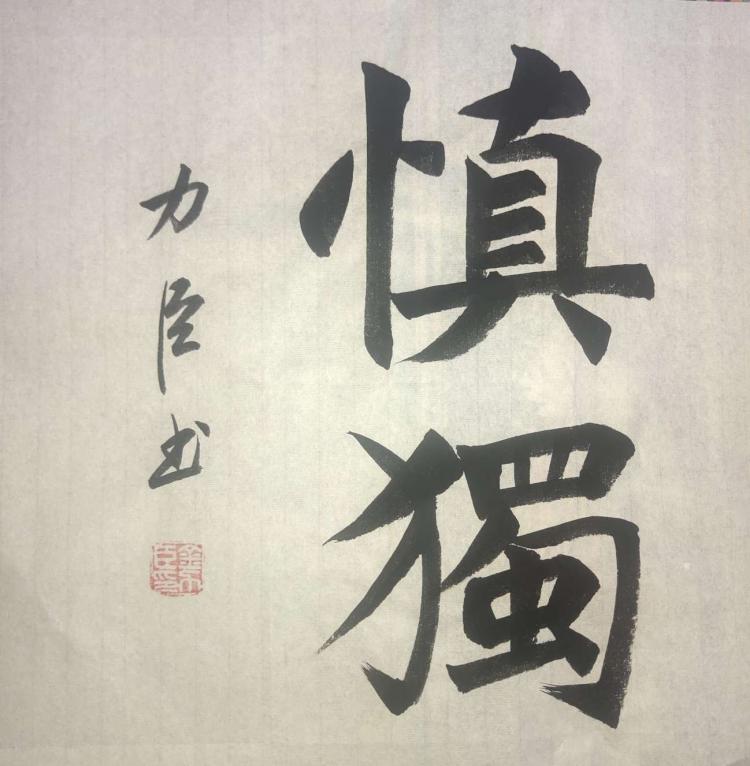 慎獨
力臣书